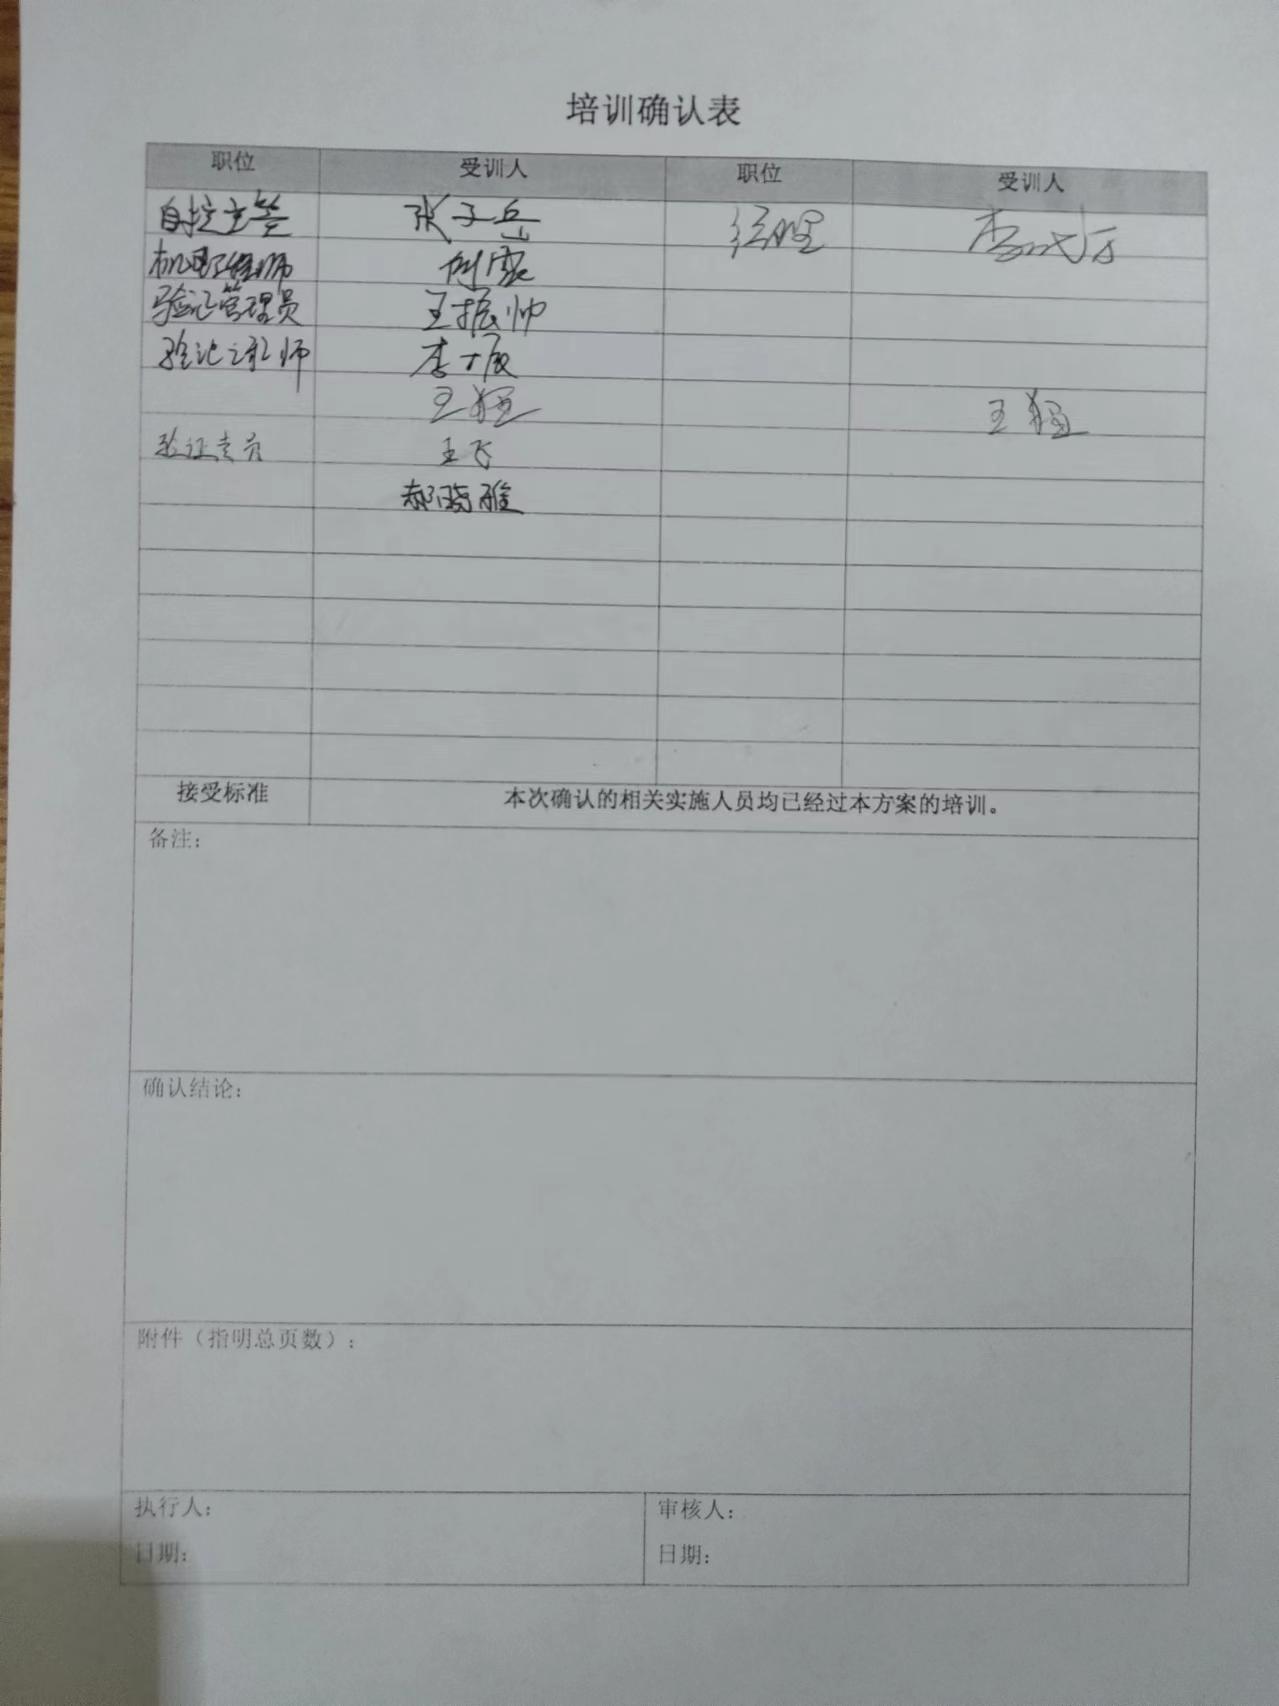 培训确认表
职位 受训人 职位 受训人
自控主管 张子岳 经理
机电工程师
验证管理员 王振帅
验证工程师 李
王 王
验证专员 王飞
郝晓雅
接受标准 本次确认的相关实施人员均已经过本方案的培训。
备注:
确认结论:
附件（指明总页数）:
执行人: 审核人:
日期: 日期: